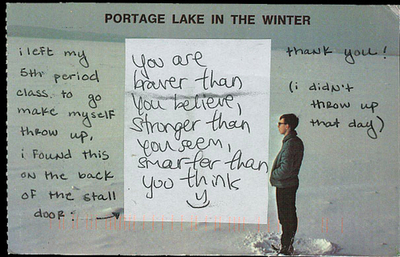 PORTAGE LAKE IN THE WINTER
i left my
5th period
class to go
make myself
throw up,
i found this
on the back
of the stall
door:
you are
braver than
you believe,
stronger than
you seem,
smarter than
you think
thank you!
(i didn't
throw up
that day)